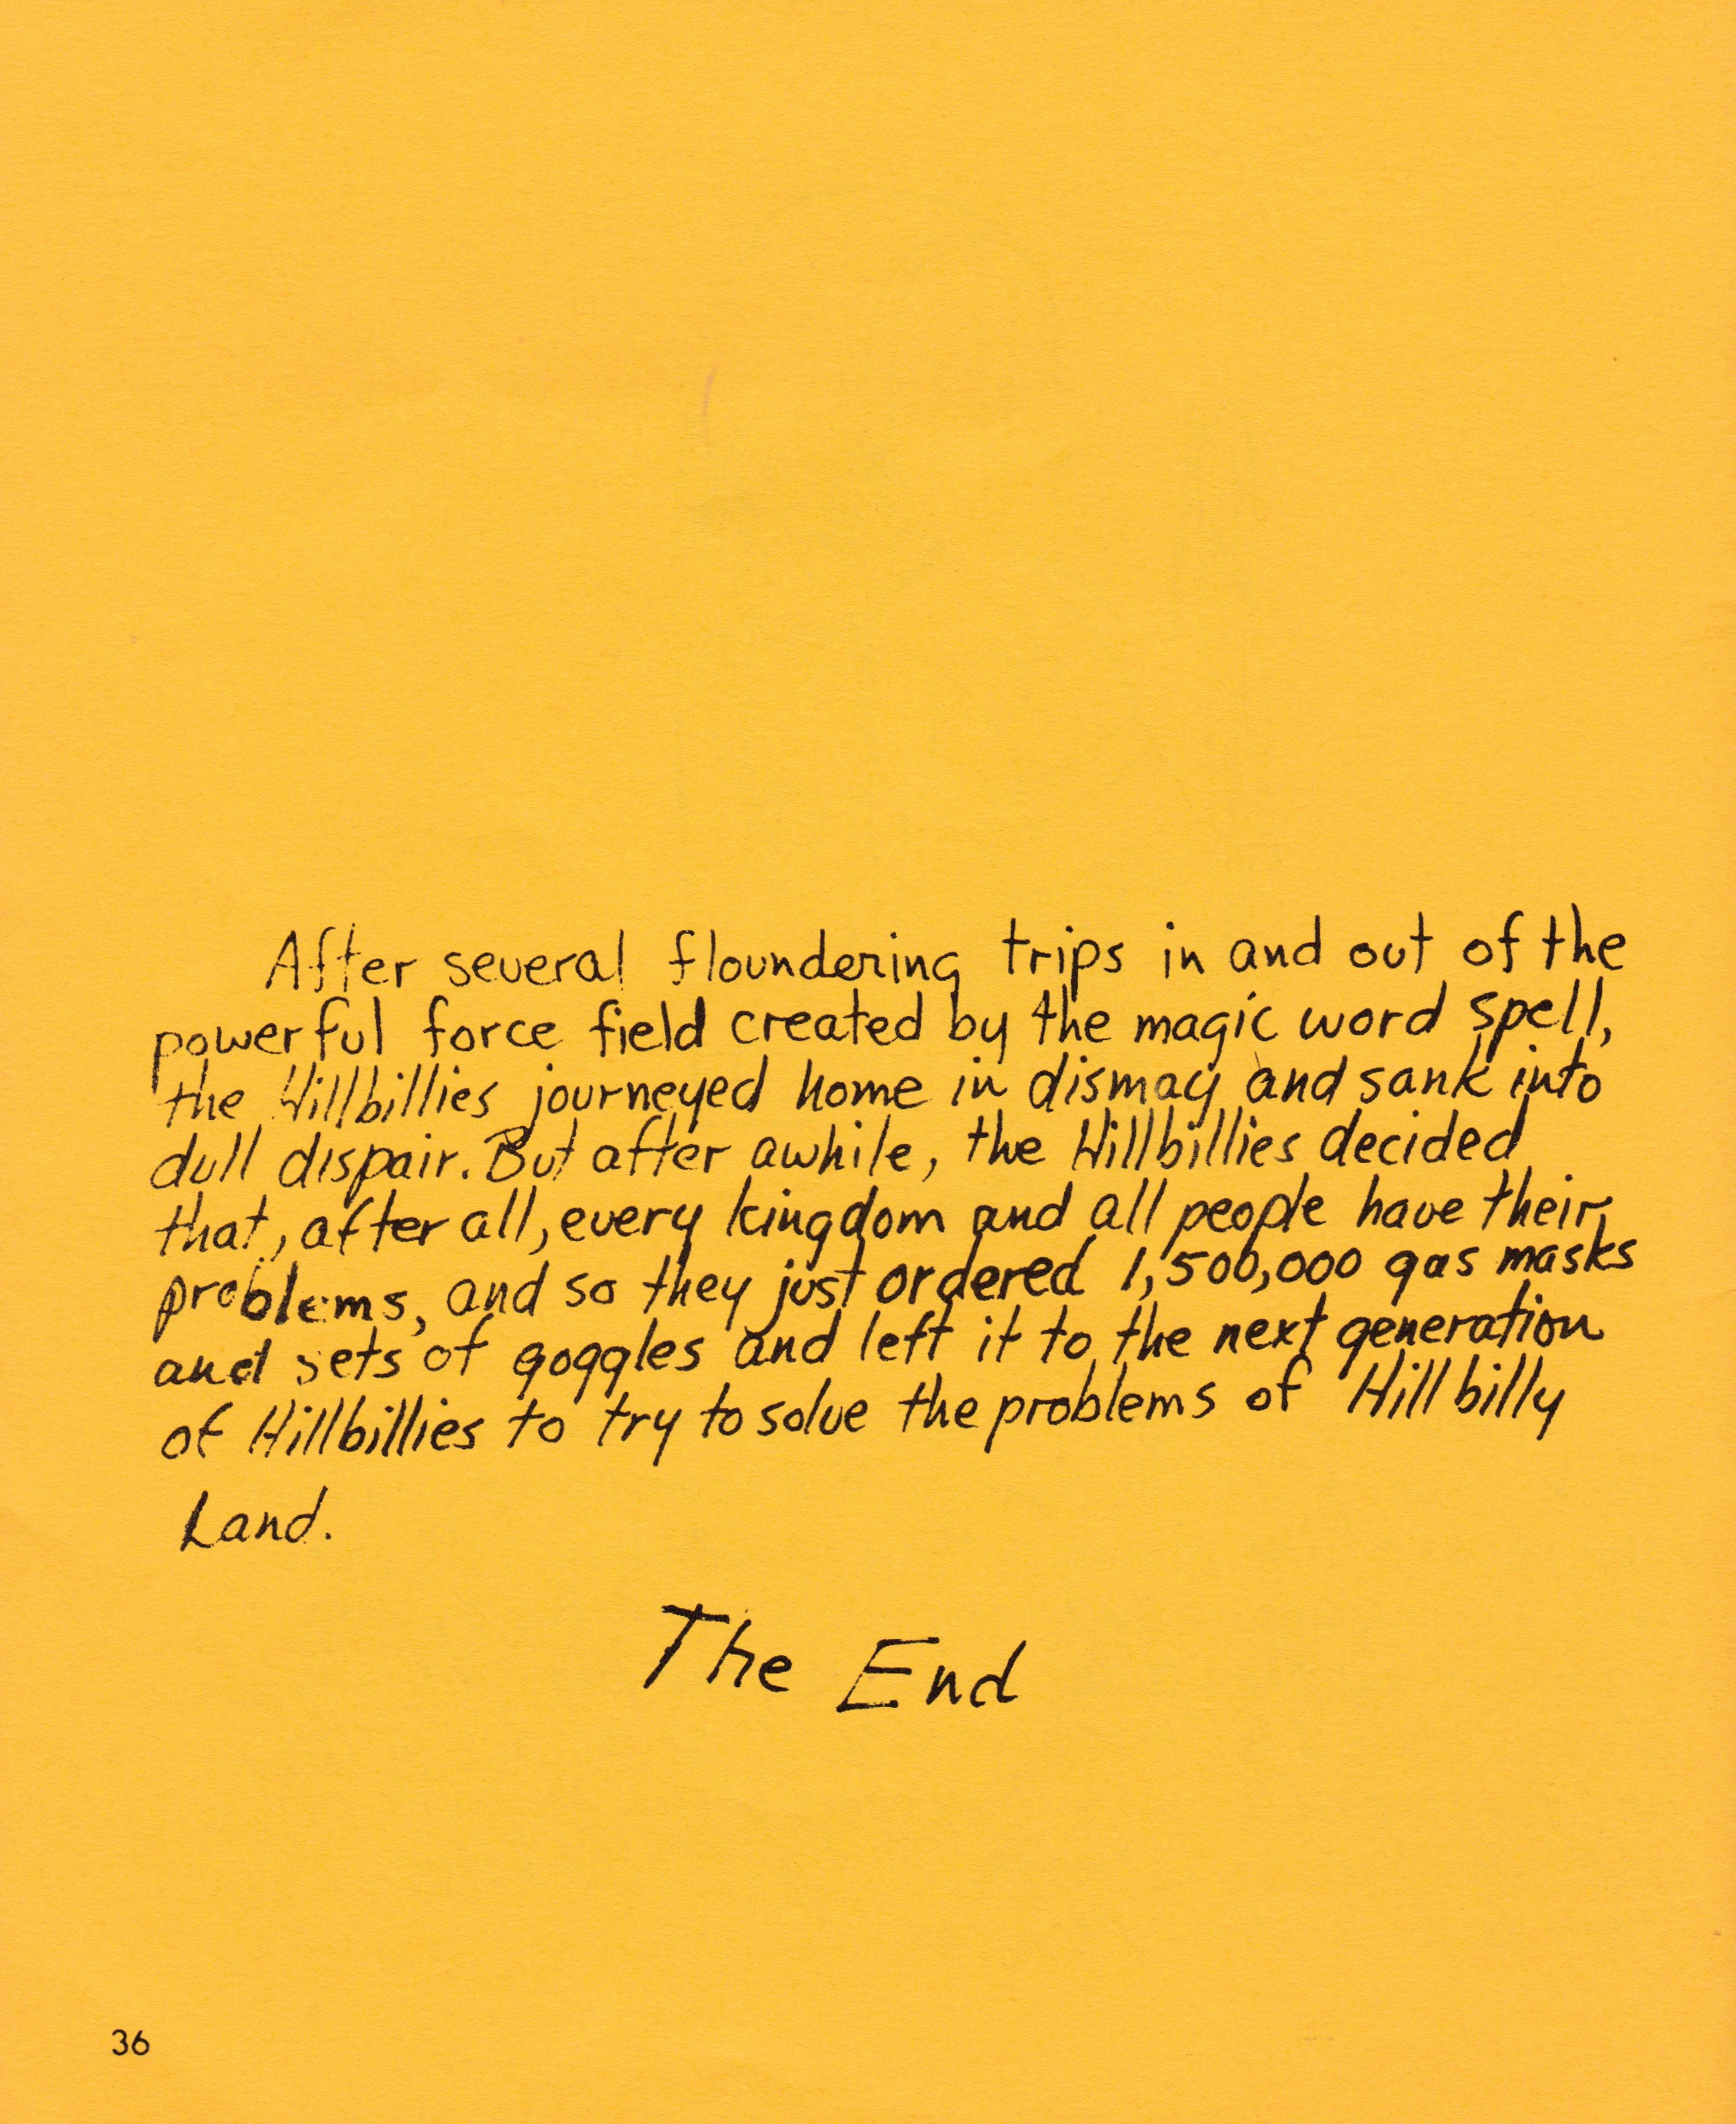 After several floundering trips in and out of the
powerful force field created by the magic word spell,
the Hillbillies journeyed home in dismay and sank into
dull dispair. But after awhile, the Hillbillies decided
that, after all, every kingdom and all people have their
problems, and so they just ordered 1,500,000 gas masks
and sets of goggles and left it to the next generation
of Hillbillies to try to solve the problems of Hillbilly
Land.
The End
36